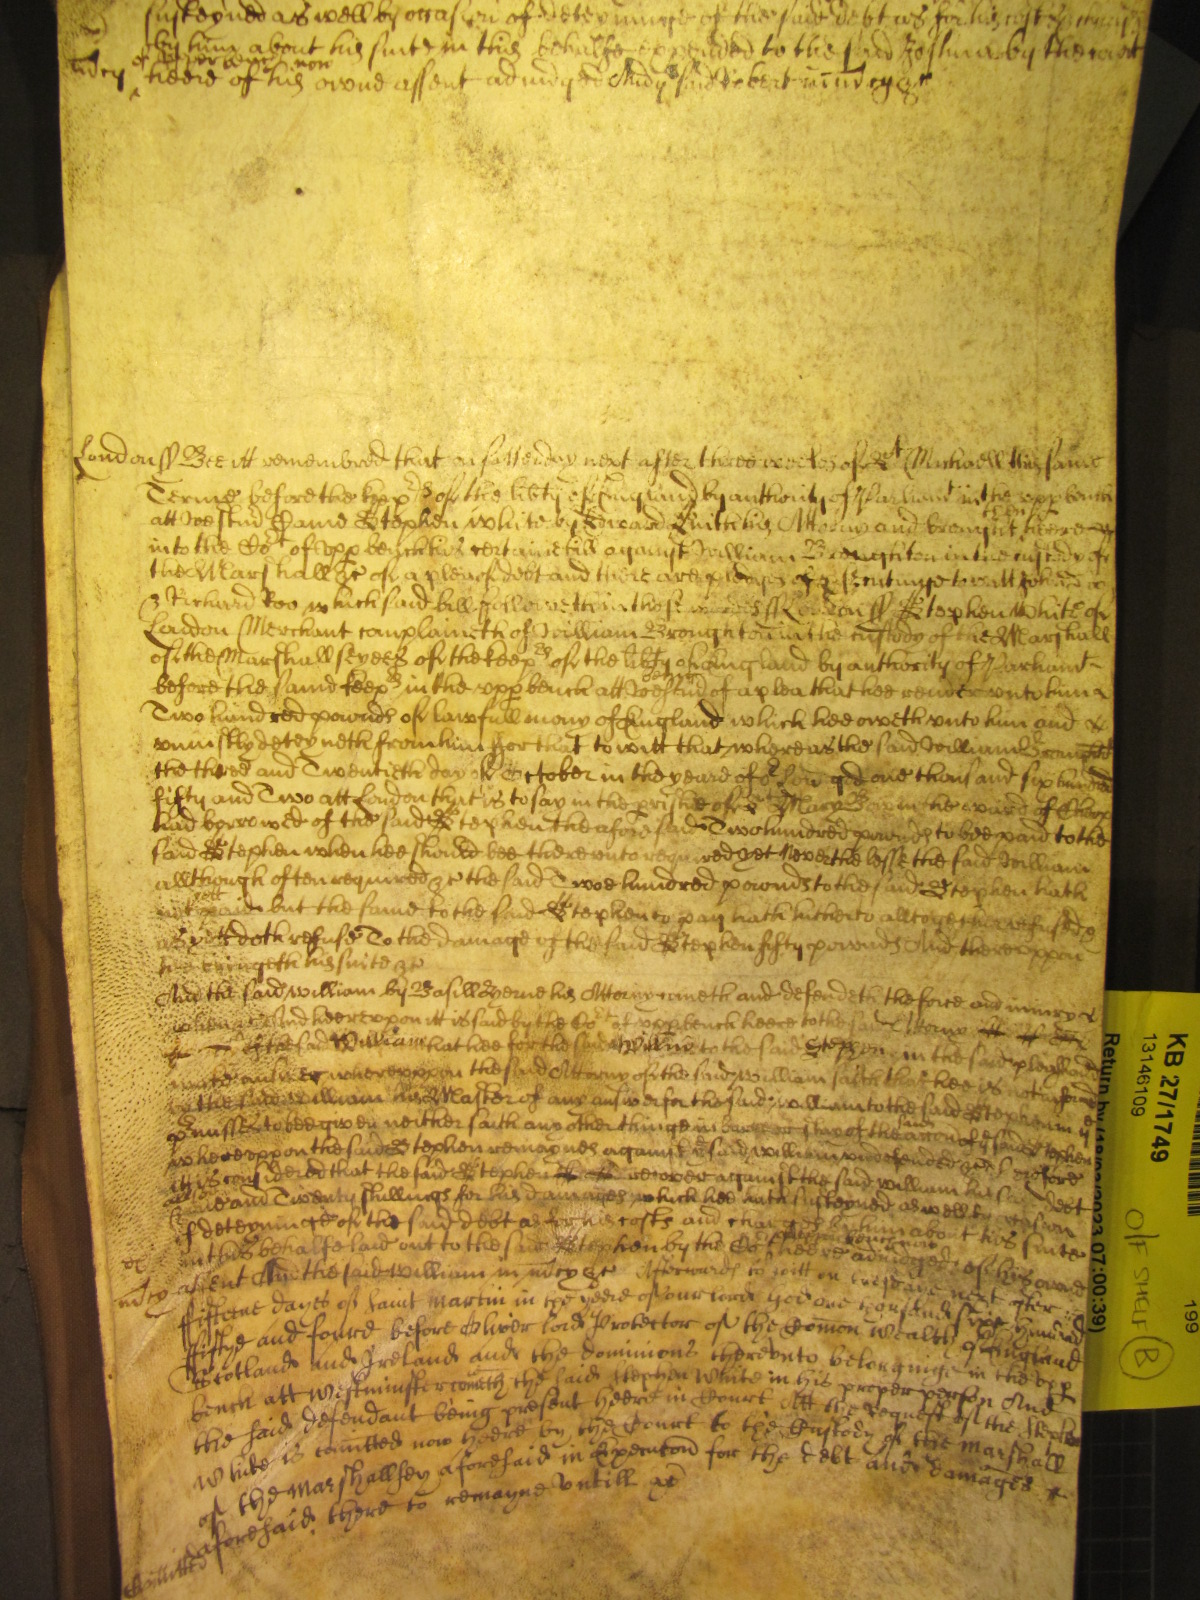 susteyned as well by occasion of deteyninge of the said debt as for his costs
by him about his suite in this behalfe expended to the said by the Court
now
heere of his owne assent adiudged And the said Robert in mcy &c
mcy
London ss Bee itt remembred that on satterday next after three weekes of St Michaell this same
Terme before the keeps of the libty of England by authority of Parliamt in the upp bench
att Westmr Came Stephen White by his Attorny and brought heere
into the Cot of upp bench his certaine bill against William Broughton in the custody of
the Marshall &c of a plea of debt and there are pledges of prosecutinge to witt John Doe
& Richard Roo which said bill followeth in these words ss London ss Stephen White of
London Merchant complaineth of William Broughton in the custody of the Marshall
of the Marshallseyes of the keeps of the libty of England by authority of Parliamt
before the same keeps in the upp bench att Westmr of a plea that hee render unto him
Two hundred pownds of lawfull mony of England which hee oweth unto him and
uniustly deteyneth from him For that to witt that whereas the said William Broughton
the three and Twentieth day of October in the yeare of or Lord god one thousand six hundred
fifty and Two att London that is to say in the prishe of St Mary Bow in the ward of Cheap
had borrowed of the said Stephen the aforesaid Two hundred pownds to bee paid to the
said Stephen when hee should bee thereunto required yet Neverthelesse the said William
allthough often required &c the said Twoe hundred pownds to the said Stephen hath
not paid but the same to the said Stephen to pay hath hitherto alltogether refused &
as yett doth refuse To the damage of the said Stephen fifty pownds And thereuppon
hee bringeth his suite &c
And the said William by Basill Herne his Attorny cometh and defendeth the force and iniury
when &c And hereuppon itt is said by the Cot of upp bench heere to the said Attorny
of the said William that hee for the said William to the said Stephen in the said plea
answer whereuppon the said Attorny of the said William saith that hee is not informed
by the said William his Master of any answer for the said William to the said Stephen in ye
pmisses to bee given neither saith any other thinge in barr or stay of the accon of ye said Stephen
whereuppon the said Stephen remaynes against ye said William undefended &c Therefore
itt is considered that the said Stephen recover against the said William his said debt
and Twenty shillings for his damages which hee hath susteyned as well by reason
of deteyninge of the said debt as for his costs and charges by him about his suite
in this behalfe laid out to the said Stephen by the Cot heere adiudged of his owne
mcy
assent And the said William in mcy &c Afterwards to witt on next after
fifteene dayes of Saint Martin in the yeere of our lord god one thousand sixe hundred
fiftye and foure before Oliver lord Protector of the Comon wealth of England
Scotland and Ireland and the dominions thereunto belonginge in the upp
bench att Westminster cometh the said Stephen White in his proper person And
the said defendant being present heere in Court Att the request of the Stephen
White is comitted now heere by the Court to the Custody of the marshall
of the marshallsey aforesaid in Execucon for the debt and damages
aforesaid there to remayne untill &c
Comitted
KB 27/1749
13146109
199
Return by (18/01/2023 07:00:39)
B